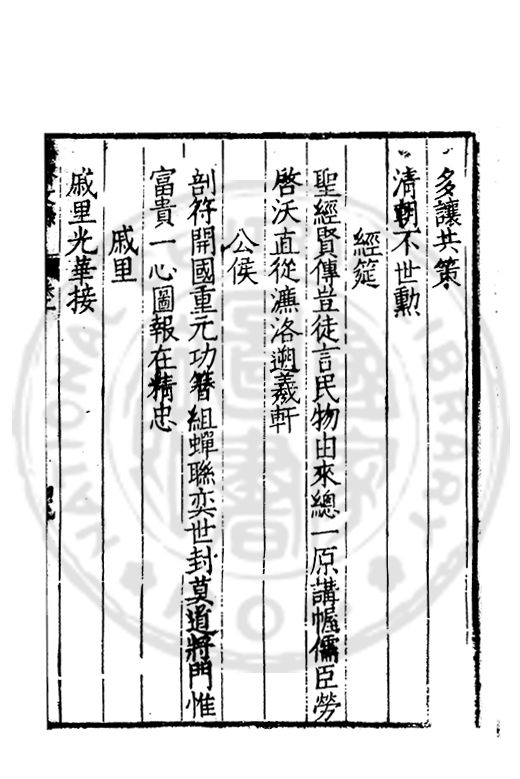 多讓共策
清朝不世勳
經筵
聖經賢傳豈徒言民物由來總一原講幄儒臣勞
啓沃直從濂洛遡羲軒
公侯
剖符開國重元功簪組蟬聯奕世封莫道將門惟
富貴一心圖報在精忠
戚里
戚里光華接
NATIONAL LIBRARY